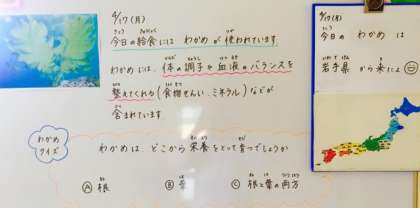 4/17（月）
今日の給食には わかめが 使われています。
わかめには、体の調子や血液のバランスを
整えてくれる（食物せんい、ミネラル）などが
含まれています。
わかめ
クイズ
わかめは、どこから栄養をとって育つでしょうか
Ⓐ 根 Ⓑ 葉 Ⓒ 根と葉の両方
4/17（月）
今日の わかめ は
岩手県 から来たよ